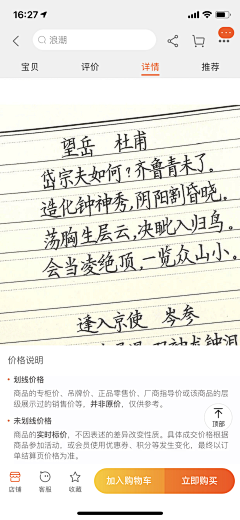 16:27
浪潮
宝贝 评价 详情 推荐
望岳 杜甫
岱宗夫如何?齐鲁青未了。
造化钟神秀,阴阳割昏晓。
荡胸生层云,决眦入归鸟。
会当凌绝顶,一览众山小。
逢入京使 岑参
价格说明
划线价格
商品的专柜价、吊牌价、正品零售价、厂商指导价或该商品的曾
级展示过的销售价等,并非原价,仅供参考。
未划线价格
商品的实时标价,不因表述的差异改变性质。具体成交价格根据
商品参加活动,或会员使用优惠券、积分等发生变化,最终以订
单结算页价格为准。
顶部
店铺 客服 收藏 加入购物车 立即购买